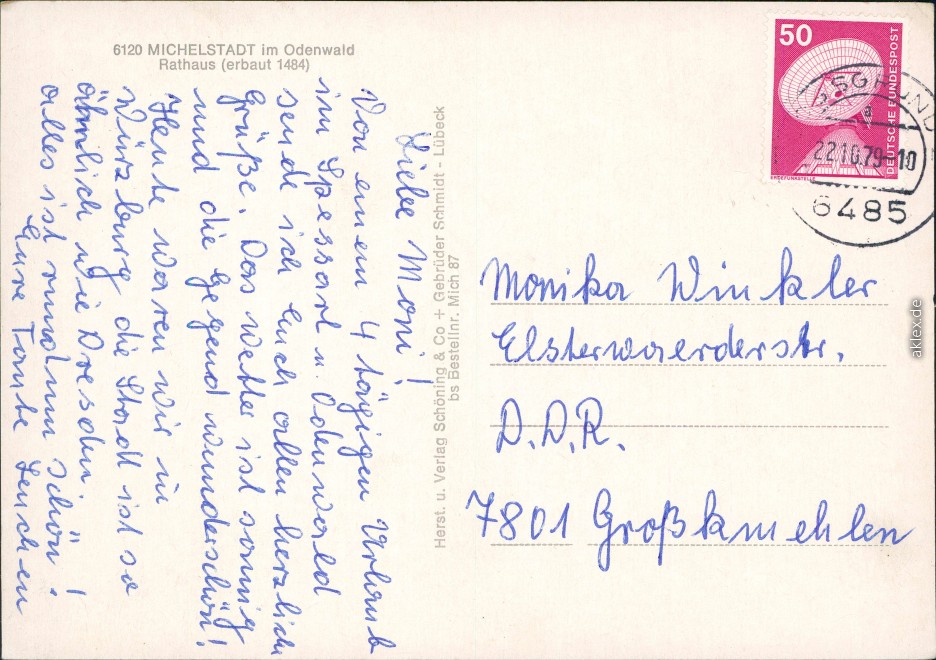 6120 MICHELSTADT im Odenwald
Rathaus (erbaut 1484)
Liebe Moni!
Von einem 4 tägigen Urlaub
im Spessart u. Odenwald
sende ich Euch allen herzliche
Grüße. Das Wetter ist sonnig
und die Gegend wunderschön!
Heute waren wir in
Würzburg die Stadt ist so
ähnlich wie Dresden.
alles ist rundum schön!
Eure Tante Lenchen
Herst. u. Verlag Schöning & Co + Gebrüder Schmidt - Lübeck
bs Bestellnr. Mich 87
50
DEUTSCHE BUNDESPOST
ERDEFUNKSTELLE
22.10.79-10
6485
Monika Winkler
Elsterwaerderstr.
D.D.R.
7801 Großkmehlen
aklex.de